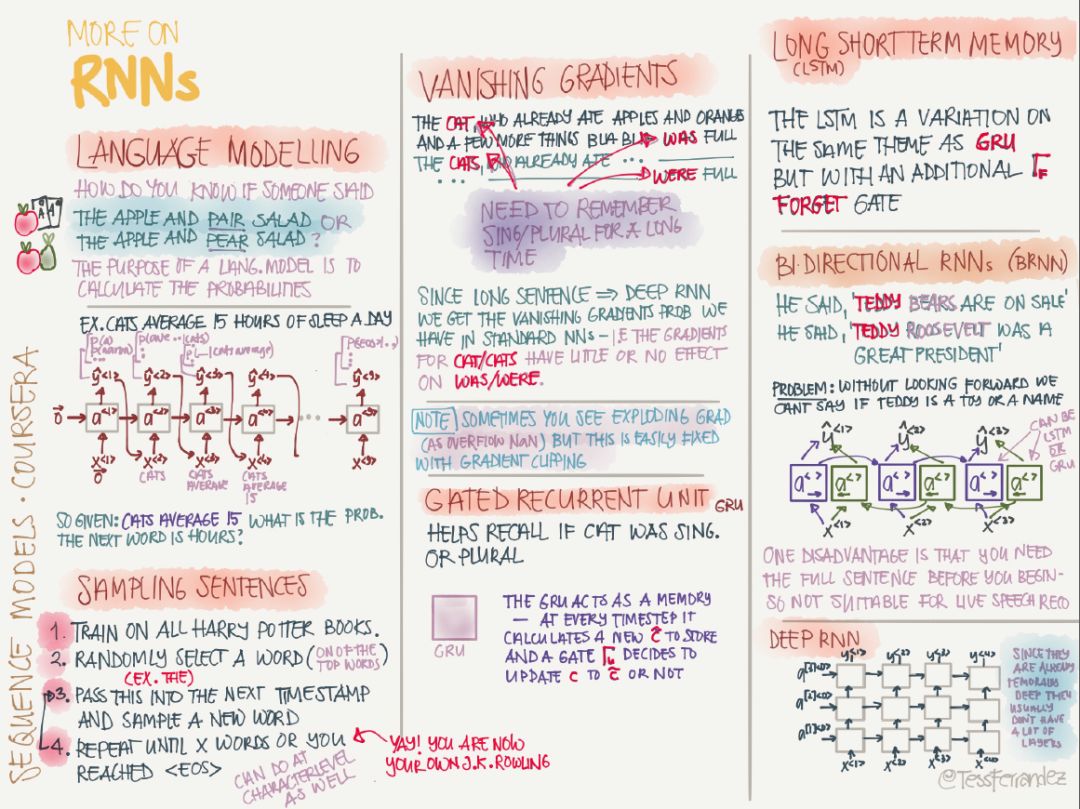 MORE ON
RNNs
LANGUAGE MODELLING
HOW DO YOU KNOW IF SOMEONE SAID
THE APPLE AND PAIR SALAD OR
THE APPLE AND PEAR SALAD?
THE PURPOSE OF A LANG.MODEL IS TO
CALCULATE THE PROBABILITIES
EX.CATS AVERAGE 15 HOURS OF SLEEP A DAY
P(a)
P(ave..|cats)
P(__|cats average)
P(<EOS>|..)
ŷ<1> ŷ<2> ŷ<3> ŷ<4> ŷ<9>
0⃗ a<1> a<2> a<3> a<4> ... a<9>
x<1> x<2> x<3> x<4> x<9>
0⃗
CATS
CATS AVERAGE
CATS AVERAGE 15
SO GIVEN: CATS AVERAGE 15 WHAT IS THE PROB.
THE NEXT WORD IS HOURS?
SAMPLING SENTENCES
1. TRAIN ON ALL HARRY POTTER BOOKS.
2. RANDOMLY SELECT A WORD (ON OF THE
TOP WORDS)
(EX. THE)
3. PASS THIS INTO THE NEXT TIMESTAMP
AND SAMPLE A NEW WORD
4. REPEAT UNTIL X WORDS OR YOU
REACHED <EOS>
CAN DO AT
CHARACTERLEVEL
AS WELL
YAY! YOU ARE NOW
YOUR OWN J.K.ROWLING
SEQUENCE MODELS · COURSERA
VANISHING GRADIENTS
THE CAT, WHO ALREADY ATE APPLES AND ORANGE
AND A FEW MORE THINGS BLA BLA WAS FULL
THE CATS, WHO ALREADY ATE ...
... WERE FULL
NEED TO REMEMBER
SING/PLURAL FOR A LONG
TIME
SINCE LONG SENTENCE ⇒ DEEP RNN
WE GET THE VANISHING GRADIENTS PROB WE
HAVE IN STANDARD NNs - I.E THE GRADIENTS
FOR CAT/CATS HAVE LITLE OR NO EFFECT
ON WAS/WERE.
NOTE SOMETIMES YOU SEE EXPLODING GRAD
(AS OVERFLOW NAN) BUT THIS IS EASILY FIXED
WITH GRADIENT CLIPPING
GATED RECURRENT UNIT GRU
HELPS RECALL IF CAT WAS SING.
OR PLURAL
GRU
THE GRU ACTS AS A MEMORY
- AT EVERY TIMESTEP IT
CALCULATES A NEW c̃ TO STORE
AND A GATE Γu DECIDES TO
UPDATE c TO c̃ OR NOT
LONG SHORT TERM MEMORY
(LSTM)
THE LSTM IS A VARIATION ON
THE SAME THEME AS GRU
BUT WITH AN ADDITIONAL Γf
FORGET GATE
BI-DIRECTIONAL RNNs (BRNN)
HE SAID, 'TEDDY BEARS ARE ON SALE'
HE SAID, 'TEDDY ROOSEVELT WAS A
GREAT PRESIDENT'
PROBLEM: WITHOUT LOOKING FORWARD WE
CANT SAY IF TEDDY IS A TOY OR A NAME
ŷ<1> ŷ<2> ŷ<3>
CAN BE
LSTM
OR
GRU
a<> a<> a<> a<> a<> a<>
x<1> x<2> x<3>
ONE DISADVANTAGE IS THAT YOU NEED
THE FULL SENTENCE BEFORE YOU BEGIN-
SO NOT SUITABLE FOR LIVE SPEECH RECO
DEEP RNN
y<1> y<2> y<3> y<4>
a[3]<0>
a[2]<0>
a[1]<0>
x<1> x<2> x<3> x<4>
SINCE THEY
ARE ALREADY
TEMORALLY
DEEP THEY
USUALLY
DON'T HAVE
A LOT OF
LAYERS
@TessFerrandez